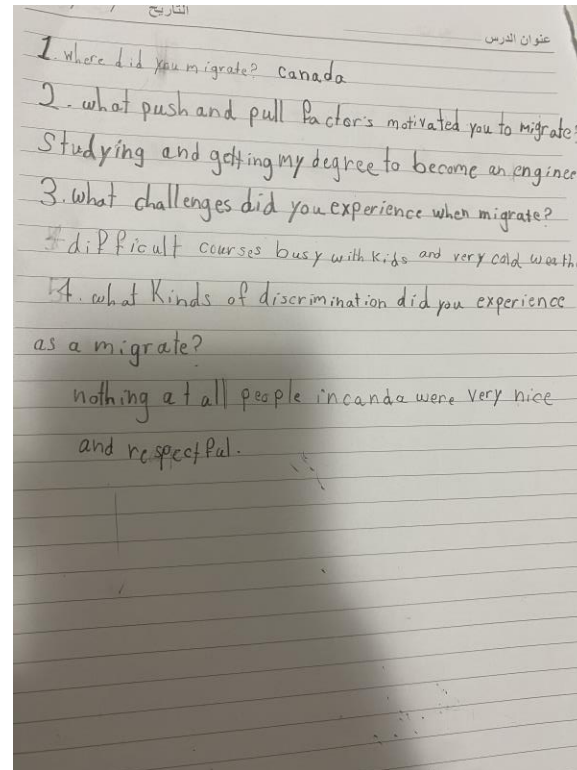 التاريخ / /
عنوان الدرس
1. where did you migrate? Canada
2. what push and pull factor's motivated you to migrate?
Studying and getting my degree to become an enginee
3. what challenges did you experience when migrate?
difficult courses busy with kids and very cold weath
4. what kinds of discrimination did you experience
as a migrate?
nothing at all people incanda were very nice
and respectful.